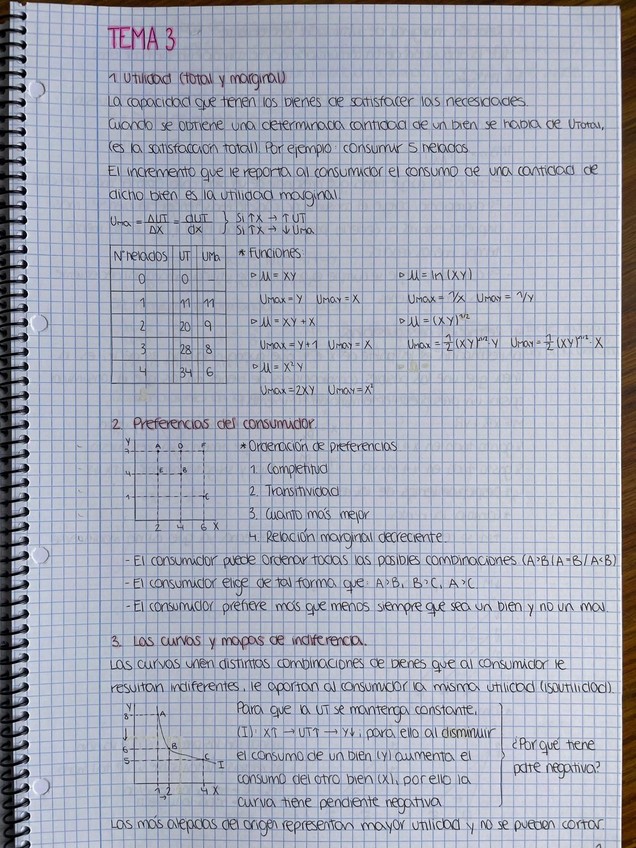 TEMA 3
1. Utilidad (total y marginal)
La capacidad que tienen los bienes de satisfacer las necesidades.
Cuando se obtiene una determinada cantidad de un bien se habla de UTotal,
(es la satisfacción total). Por ejemplo: consumir 5 helados.
El incremento que le reporta al consumidor el consumo de una cantidad de
dicho bien es la utilidad marginal.
Uma = ΔUT/ΔX = dUT/dx } Si ↑X → ↑UT
Si ↑X → ↓Uma
Nº helados UT UMa
0 0 -
1 11 11
2 20 9
3 28 8
4 34 6
* Funciones:
▷ U = XY
Umax = Y Umay = X
▷ U = XY + X
Umax = Y+1 Umay = X
▷ U = X²Y
Umax = 2XY Umay = X²
▷ U = ln (XY)
Umax = 1/X Umay = 1/Y
▷ U = (XY)^1/2
Umax = 1/2 (XY)^-1/2 · Y Umay = 1/2 (XY)^-1/2 · X
2. Preferencias del consumidor
Y
A D F
4 E B
1 C
2 4 6 X
* Ordenación de preferencias
1. Completitud
2. Transitividad
3. Cuanto más mejor
4. Relación marginal decreciente.
- El consumidor puede ordenar todas las posibles combinaciones (A>B/A=B/A<B)
- El consumidor elige de tal forma que: A>B, B>C, A>C
- El consumidor prefiere más que menos siempre que sea un bien y no un mal.
3. Las curvas y mapas de indiferencia.
Las curvas unen distintas combinaciones de bienes que al consumidor le
resultan indiferentes, le aportan al consumidor la misma utilidad (isoutilidad).
Y
8 A
6 B
5 C I
1 2 4 X
Para que la UT se mantenga constante,
(I): X↑ → UT↑ → Y↓, para ello al disminuir
el consumo de un bien (Y) aumenta el
consumo del otro bien (X), por ello la
curva tiene pendiente negativa.
¿Por qué tiene
pdte negativa?
Las más alejadas del origen representan mayor utilidad y no se pueden cortar.